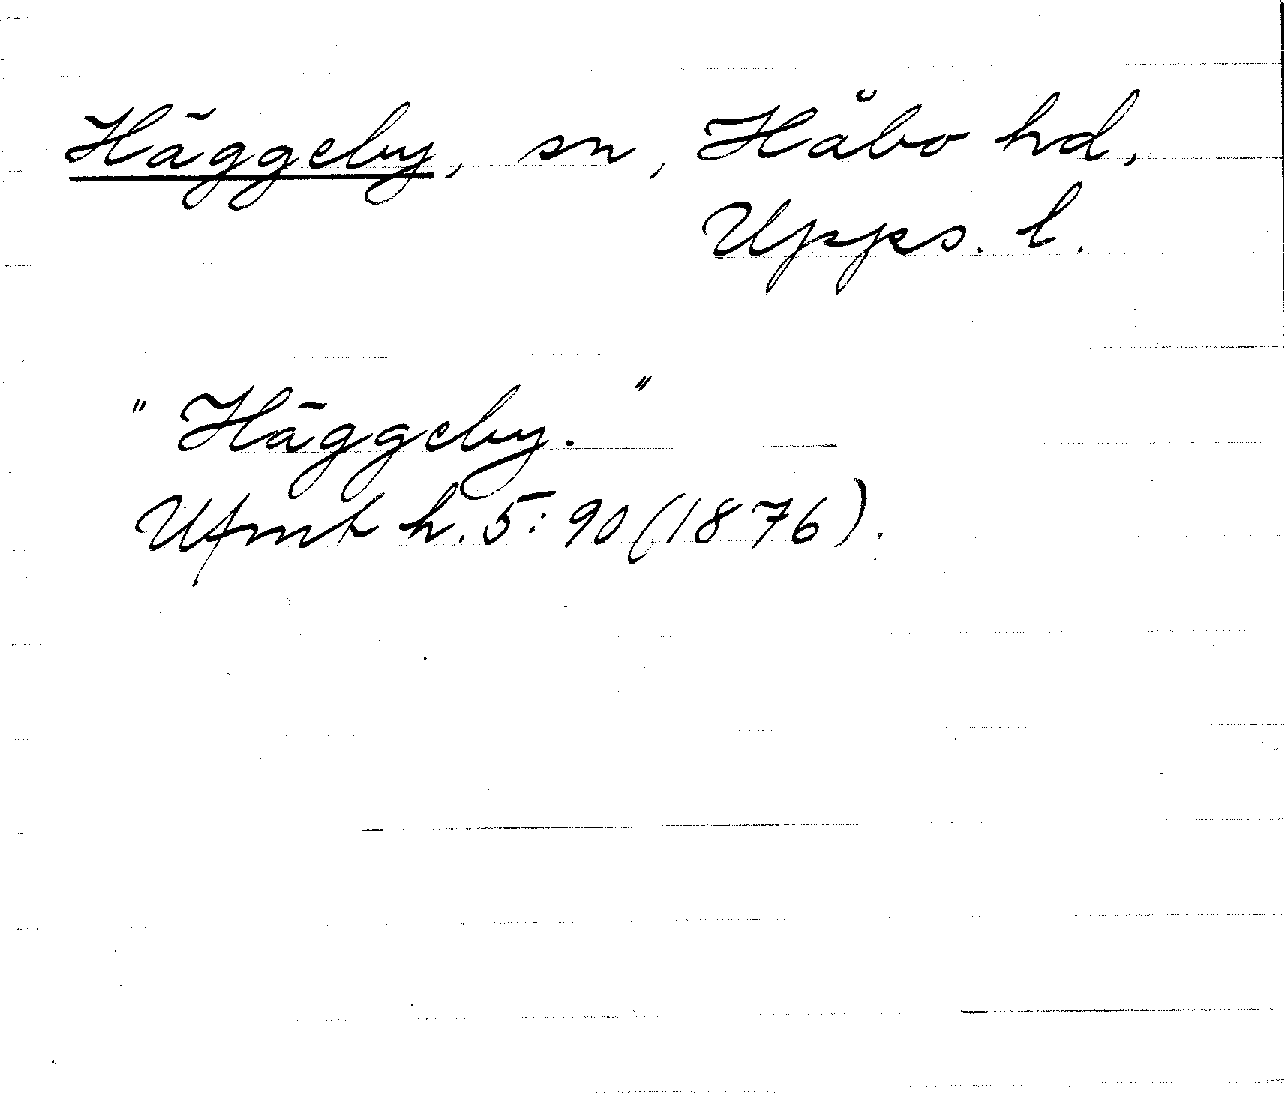 Häggeby, sn, Håbo hd,
Upps. l.
"Häggeby."
Ufmt h. 5: 90 (1876).